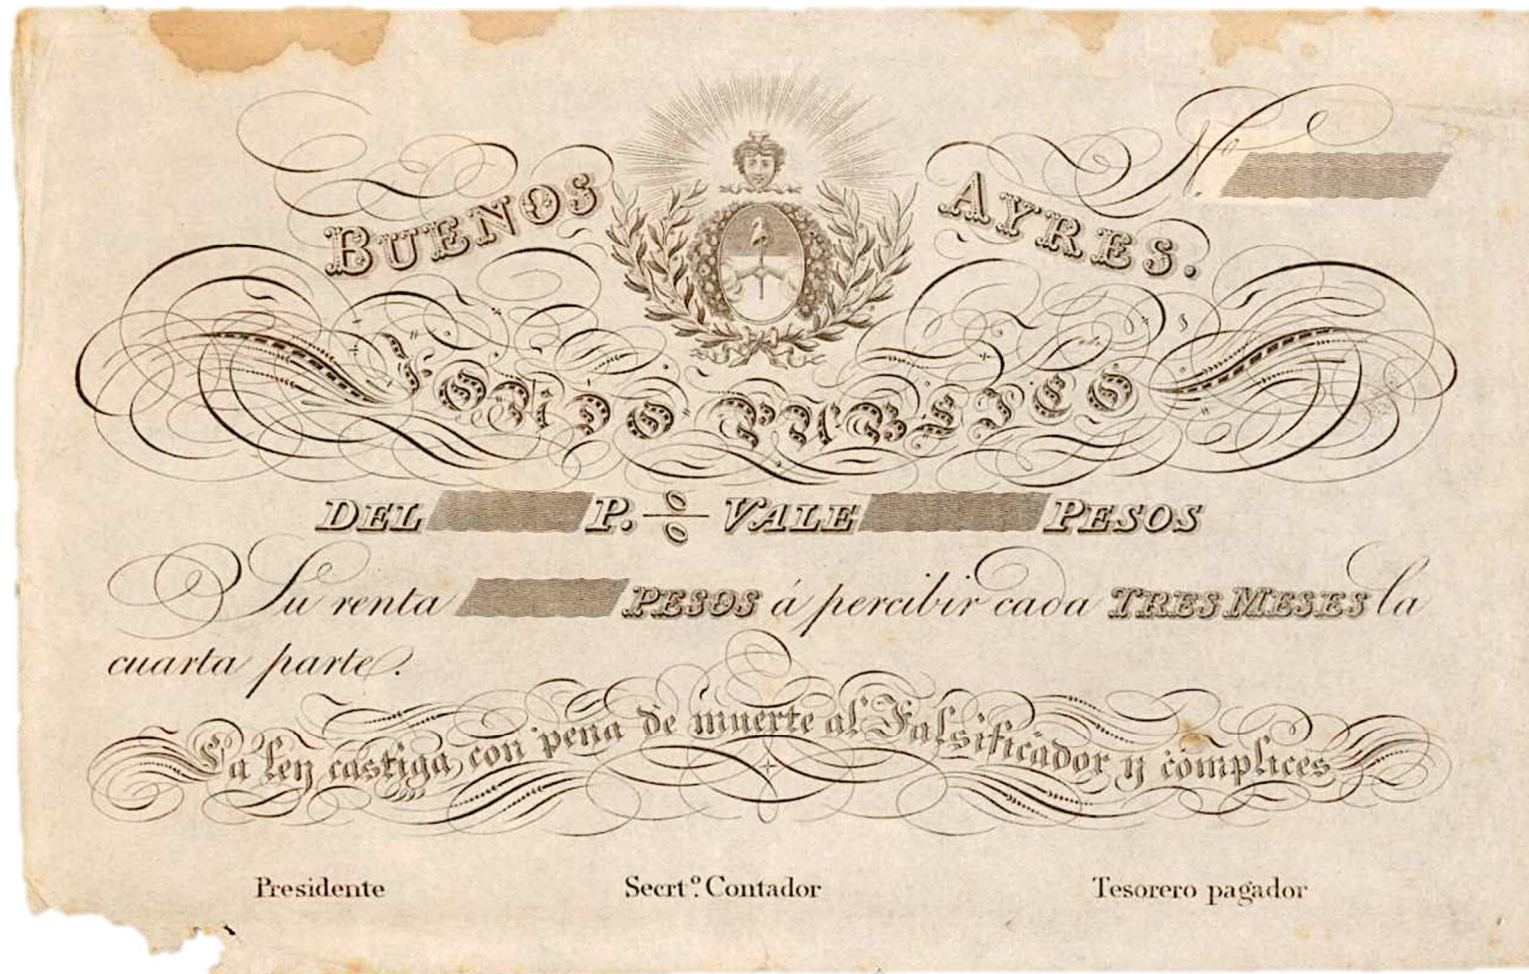 Nº
BUENOS AYRES.
FONDO PUBLICO
DEL P. % VALE PESOS
Su renta PESOS á percibir cada TRES MESES la
cuarta parte.
La ley castiga con pena de muerte al Falsificador y cómplices
Presidente Secrtº. Contador Tesorero pagador